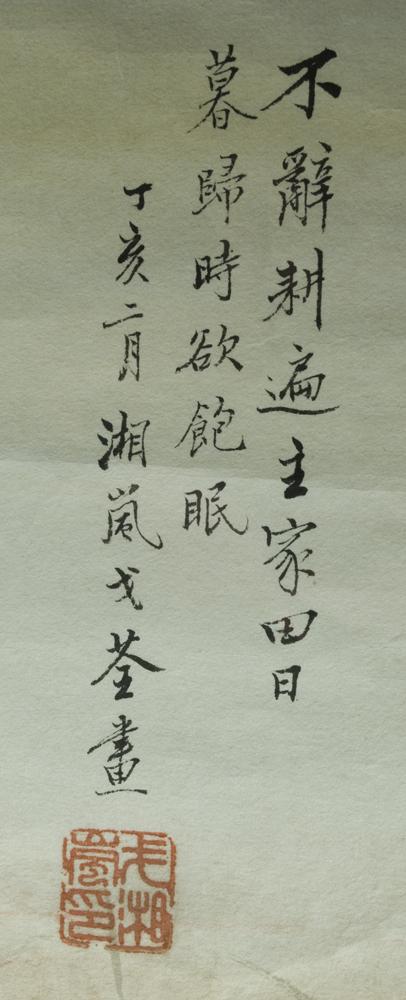 不辭耕遍主家田日
暮歸時欲飽眠
丁亥二月湘嵐戈荃畫
戈湘嵐印